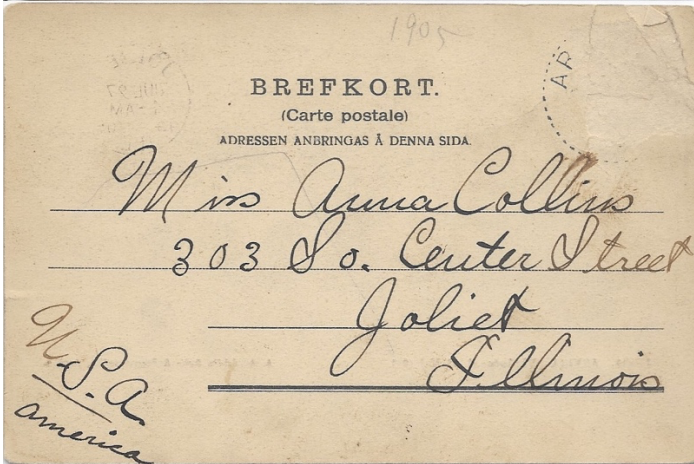 1905
BREFKORT.
(Carte postale)
ADRESSEN ANBRINGAS Å DENNA SIDA.
AR
Miss Anna Collins
303 So. Center Street
Joliet
Illinois
U.S.A.
america